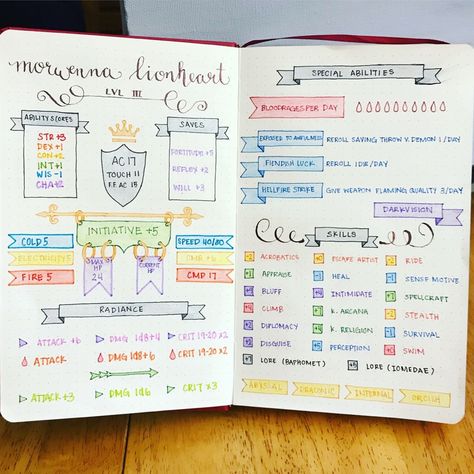 morwenna lionheart
LVL III
ABILITY SCORES
STR +3
DEX +1
CON +2
INT +1
WIS -1
CHA +2
AC 17
TOUCH 11
F.F. AC 15
SAVES
FORTITUDE +5
REFLEX +2
WILL +3
INITIATIVE +5
COLD 5
ELECTRICITY 5
FIRE 5
MAX HP
24
CURRENT HP
SPEED 40/30
CMB +6
CMD 17
RADIANCE
ATTACK +6 DMG 1d8+4 CRIT 19-20 x2
ATTACK DMG 1d8+6 CRIT 19-20 x2
ATTACK +3 DMG 1d6 CRIT x3
SPECIAL ABILITIES
BLOODRAGES PER DAY
EXPOSED TO AWFULNESS REROLL SAVING THROW V. DEMON 1/DAY
FIENDISH LUCK REROLL 1DIE/DAY
HELLFIRE STRIKE GIVE WEAPON FLAMING QUALITY 3/DAY
DARKVISION
SKILLS
ACROBATICS ESCAPE ARTIST RIDE
APPRAISE HEAL SENSE MOTIVE
BLUFF INTIMIDATE SPELLCRAFT
CLIMB K. ARCANA STEALTH
DIPLOMACY K. RELIGION SURVIVAL
DISGUISE +5 PERCEPTION SWIM
LORE (BAPHOMET) LORE (IOMEDAE)
ABYSSAL DRACONIC INFERNAL ORCISH